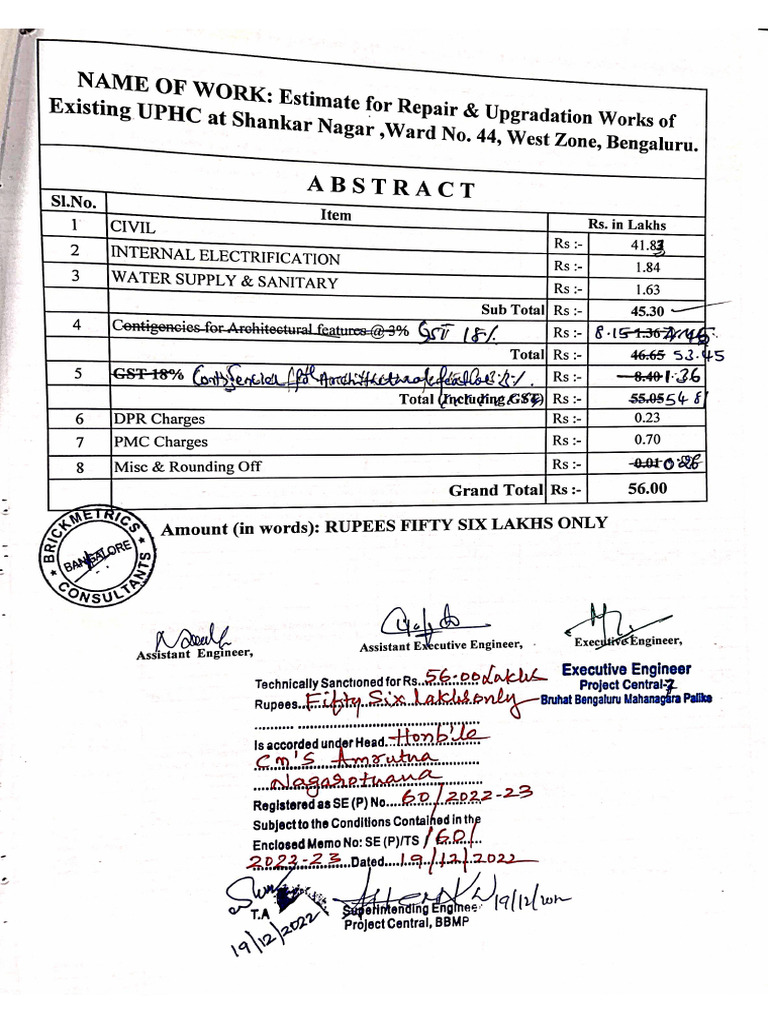 NAME OF WORK: Estimate for Repair & Upgradation Works of
Existing UPHC at Shankar Nagar ,Ward No. 44, West Zone, Bengaluru.
ABSTRACT
Sl.No. Item Rs. in Lakhs
1 CIVIL Rs :- 41.83
2 INTERNAL ELECTRIFICATION Rs :- 1.84
3 WATER SUPPLY & SANITARY Rs :- 1.63
Sub Total Rs :- 45.30
4 Contigencies for Architectural features @ 3% GST 18% Rs :- 8.15 1.36
Total Rs :- 46.65 53.45
5 GST 18% Rs :- 8.40 1.36
Total (Including GST) Rs :- 55.05 54.81
6 DPR Charges Rs :- 0.23
7 PMC Charges Rs :- 0.70
8 Misc & Rounding Off Rs :- 0.01 0.26
Grand Total Rs :- 56.00
Amount (in words): RUPEES FIFTY SIX LAKHS ONLY
BRICKMETRICS
BANGALORE
CONSULTANTS
Assistant Engineer,
Assistant Executive Engineer,
Executive Engineer,
Executive Engineer
Project Central-
Bruhat Bengaluru Mahanagara Palike
Technically Sanctioned for Rs. 56.00 Lakhs
Rupees Fifty Six Lakhs only
Is accorded under Head Honb'le
CM'S Amrutna
Nagarotnana
Registered as SE (P) No. 60/2022-23
Subject to the Conditions Contained in the
Enclosed Memo No: SE (P)/TS /60/
2022-23 Dated 19/12/2022
T.A
19/12/2022
Superintending Enginee 19/12/2022
Project Central, BBMP